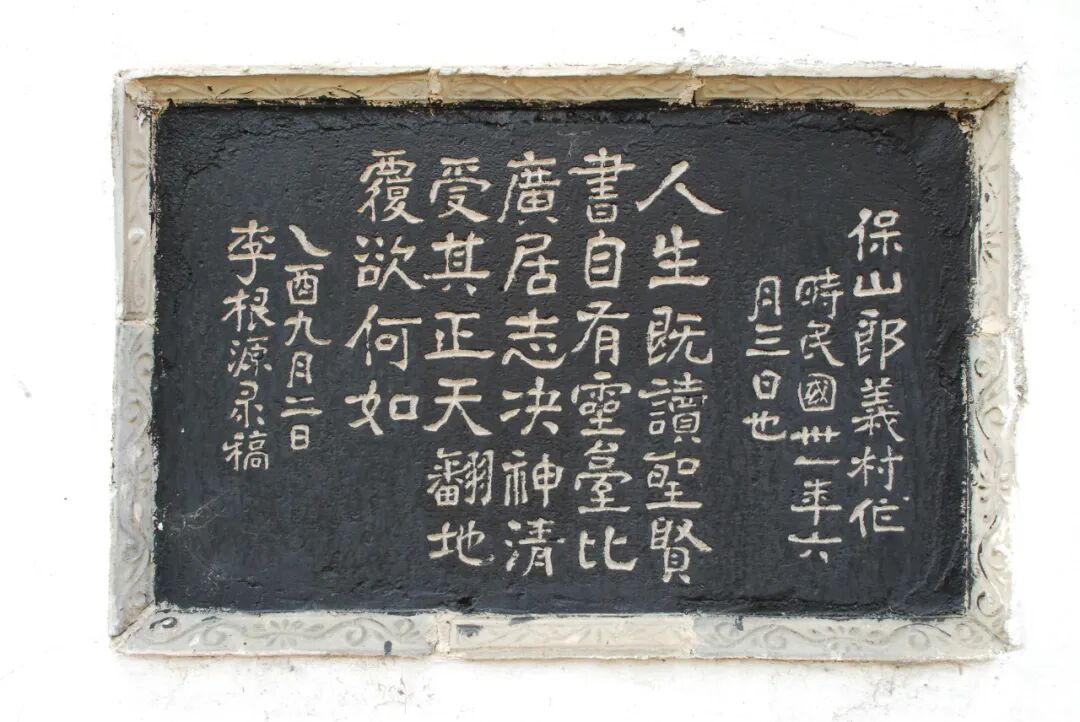 保山郎義村作
時民國卌一年六
月三日也
人生既讀聖賢
書自有靈臺比
廣居志决神清
受其正天翻地
覆欲何如
乙酉九月二日
李根源录稿